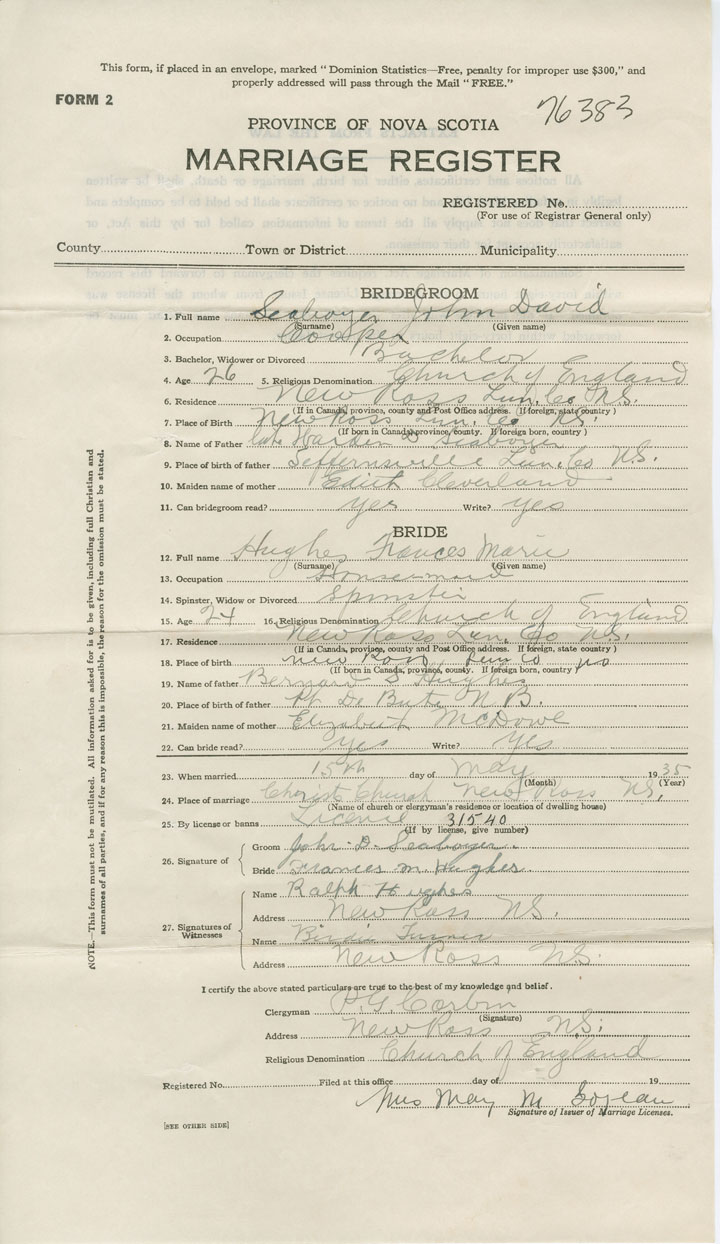 This form, if placed in an envelope, marked "Dominion Statistics—Free, penalty for improper use $300," and
properly addressed will pass through the Mail "FREE."
FORM 2
76383
PROVINCE OF NOVA SCOTIA
MARRIAGE REGISTER
REGISTERED No.
(For use of Registrar General only)
County Town or District Municipality
BRIDEGROOM
1. Full name Seaboyer John David
(Surname) (Given name)
2. Occupation Cooper
3. Bachelor, Widower or Divorced Bachelor
4. Age 26 5. Religious Denomination Church of England
6. Residence New Ross Lun. Co N.S.
(If in Canada, province, county and Post Office address. If foreign, state country)
7. Place of Birth New Ross Lun. Co N.S.
(If born in Canada, province, county. If foreign born, country)
8. Name of Father late Warden D Seaboyer
9. Place of birth of father Lun. Co N.S.
10. Maiden name of mother Edith Cleverland
11. Can bridegroom read? Yes Write? Yes
BRIDE
12. Full name Hughes Frances Marie
(Surname) (Given name)
13. Occupation Housemaid
14. Spinster, Widow or Divorced Spinster
15. Age 24 16. Religious Denomination Church of England
17. Residence New Ross Lun. Co N.S.
(If in Canada, province, county and Post Office address. If foreign, state country)
18. Place of birth New Ross Lun Co NS
(If born in Canada, province, county. If foreign born, country)
19. Name of father Bernard S Hughes
20. Place of birth of father N.B.
21. Maiden name of mother Elizabeth McDowe
22. Can bride read? Yes Write? Yes
23. When married 15th day of May 1935
(Month) (Year)
24. Place of marriage Christ Church New Ross N.S.
(Name of church or clergyman's residence or location of dwelling house)
25. By license or banns License 31540
(If by license, give number)
26. Signature of
Groom John D. Seaboyer
Bride Frances M. Hughes
27. Signatures of Witnesses
Name Ralph Hughes
Address New Ross N.S.
Name Birdie Turner
Address New Ross N.S.
I certify the above stated particulars are true to the best of my knowledge and belief.
Clergyman P.G. Corbin
(Signature)
Address New Ross N.S.
Religious Denomination Church of England
Registered No. Filed at this office day of 19
Mrs May M
Signature of Issuer of Marriage Licenses.
[SEE OTHER SIDE]
NOTE.—This form must not be mutilated. All information asked for is to be given, including full Christian and
surnames of all parties, and if for any reason this is impossible, the reason for the omission must be stated.